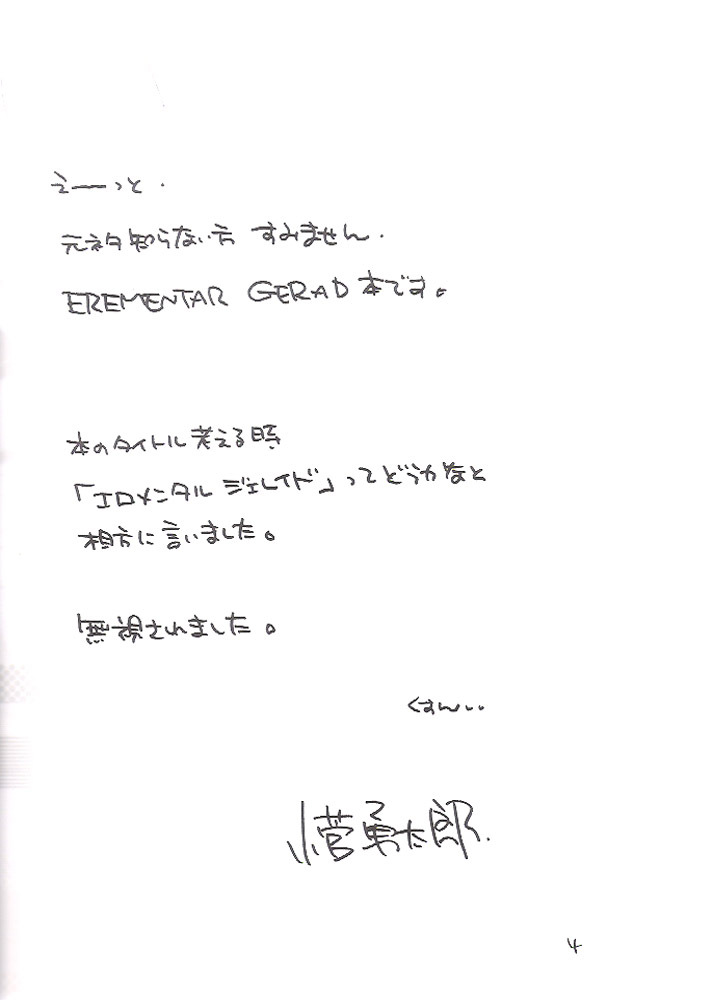 えーっと．
元ネタ知らない方 すみません．
EREMENTAR GERAD 本です。
本のタイトル考える時
「エロメンタル ジェレイド」ってどうかなと
相方に言いました。
無視されました。
くすん‥
小菅勇太郎．
4